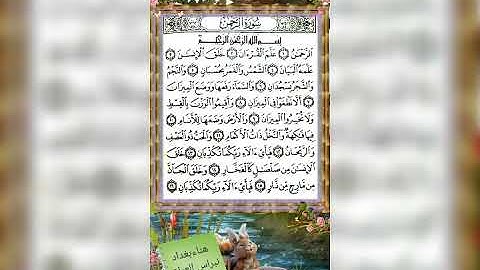 سُورَةُ الرَّحْمٰن
بِسْمِ اللَّهِ الرَّحْمَٰنِ الرَّحِيمِ
الرَّحْمَٰنُ ١ عَلَّمَ الْقُرْءَانَ ٢ خَلَقَ الْإِنسَٰنَ ٣
عَلَّمَهُ الْبَيَانَ ٤ الشَّمْسُ وَالْقَمَرُ بِحُسْبَانٍ ٥ وَالنَّجْمُ
وَالشَّجَرُ يَسْجُدَانِ ٦ وَالسَّمَاءَ رَفَعَهَا وَوَضَعَ الْمِيزَانَ
٧ أَلَّا تَطْغَوْا فِي الْمِيزَانِ ٨ وَأَقِيمُوا الْوَزْنَ بِالْقِسْطِ
وَلَا تُخْسِرُوا الْمِيزَانَ ٩ وَالْأَرْضَ وَضَعَهَا لِلْأَنَامِ ١٠
فِيهَا فَٰكِهَةٌ وَالنَّخْلُ ذَاتُ الْأَكْمَامِ ١١ وَالْحَبُّ ذُو الْعَصْفِ
وَالرَّيْحَانُ ١٢ فَبِأَيِّ ءَالَاءِ رَبِّكُمَا تُكَذِّبَانِ ١٣ خَلَقَ
الْإِنسَٰنَ مِن صَلْصَٰلٍ كَالْفَخَّارِ ١٤ وَخَلَقَ الْجَانَّ
مِن مَّارِجٍ مِّن نَّارٍ ١٥ فَبِأَيِّ ءَالَاءِ رَبِّكُمَا تُكَذِّبَانِ ١٦
هناء بغداد